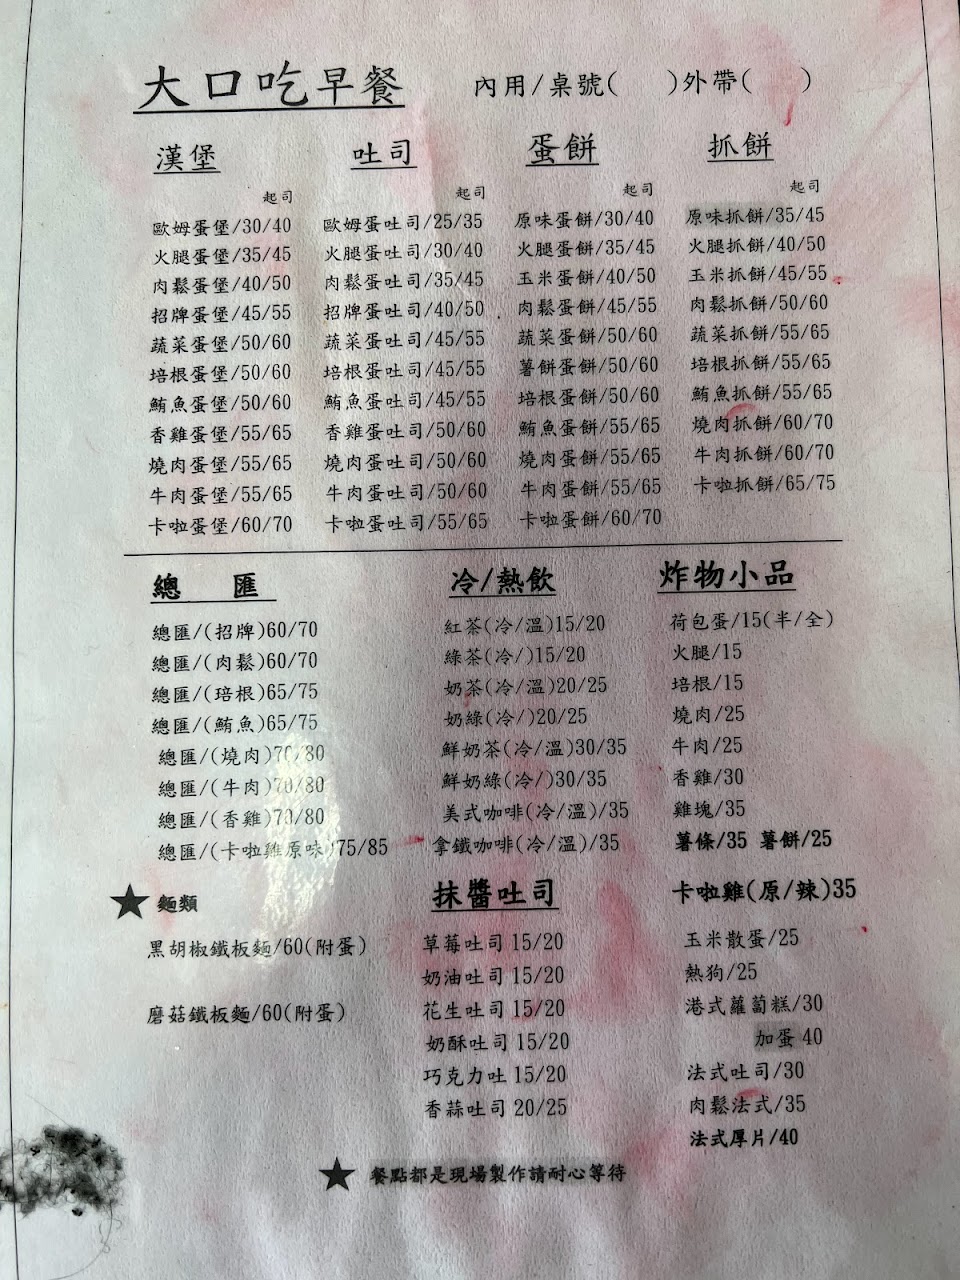 大口吃早餐 內用/桌號( )外帶( )
漢堡 吐司 蛋餅 抓餅
起司 起司 起司 起司
歐姆蛋堡/30/40 歐姆蛋吐司/25/35 原味蛋餅/30/40 原味抓餅/35/45
火腿蛋堡/35/45 火腿蛋吐司/30/40 火腿蛋餅/35/45 火腿抓餅/40/50
肉鬆蛋堡/40/50 肉鬆蛋吐司/35/45 玉米蛋餅/40/50 玉米抓餅/45/55
招牌蛋堡/45/55 招牌蛋吐司/40/50 肉鬆蛋餅/45/55 肉鬆抓餅/50/60
蔬菜蛋堡/50/60 蔬菜蛋吐司/45/55 蔬菜蛋餅/50/60 蔬菜抓餅/55/65
培根蛋堡/50/60 培根蛋吐司/45/55 薯餅蛋餅/50/60 培根抓餅/55/65
鮪魚蛋堡/50/60 鮪魚蛋吐司/45/55 培根蛋餅/50/60 鮪魚抓餅/55/65
香雞蛋堡/55/65 香雞蛋吐司/50/60 鮪魚蛋餅/55/65 燒肉抓餅/60/70
燒肉蛋堡/55/65 燒肉蛋吐司/50/60 燒肉蛋餅/55/65 牛肉抓餅/60/70
牛肉蛋堡/55/65 牛肉蛋吐司/50/60 牛肉蛋餅/55/65 卡啦抓餅/65/75
卡啦蛋堡/60/70 卡啦蛋吐司/55/65 卡啦蛋餅/60/70
總 匯 冷/熱飲 炸物小品
總匯/(招牌)60/70 紅茶(冷/溫)15/20 荷包蛋/15(半/全)
總匯/(肉鬆)60/70 綠茶(冷/)15/20 火腿/15
總匯/(培根)65/75 奶茶(冷/溫)20/25 培根/15
總匯/(鮪魚)65/75 奶綠(冷/)20/25 燒肉/25
總匯/(燒肉)70/80 鮮奶茶(冷/溫)30/35 牛肉/25
總匯/(牛肉)70/80 鮮奶綠(冷/)30/35 香雞/30
總匯/(香雞)70/80 美式咖啡(冷/溫)/35 雞塊/35
總匯/(卡啦雞原味)75/85 拿鐵咖啡(冷/溫)/35 薯條/35 薯餅/25
★ 麵類 抹醬吐司 卡啦雞(原/辣)35
黑胡椒鐵板麵/60(附蛋) 草莓吐司 15/20 玉米散蛋/25
奶油吐司 15/20 熱狗/25
磨菇鐵板麵/60(附蛋) 花生吐司 15/20 港式蘿蔔糕/30
奶酥吐司 15/20 加蛋 40
巧克力吐 15/20 法式吐司/30
香蒜吐司 20/25 肉鬆法式/35
法式厚片/40
★ 餐點都是現場製作請耐心等待